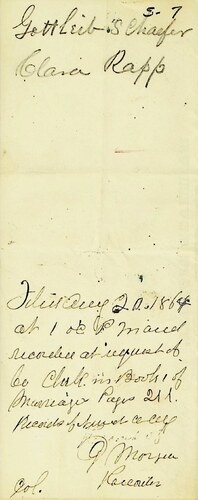 5-7
Gottleib Schaefer
Clara Rapp
Filed Aug 20. 1864
at 1 oc P M and
recorded at request of
Co Clerk in Book 1 of
Marriages Page 211.
Records of
D Morgan
Recorder